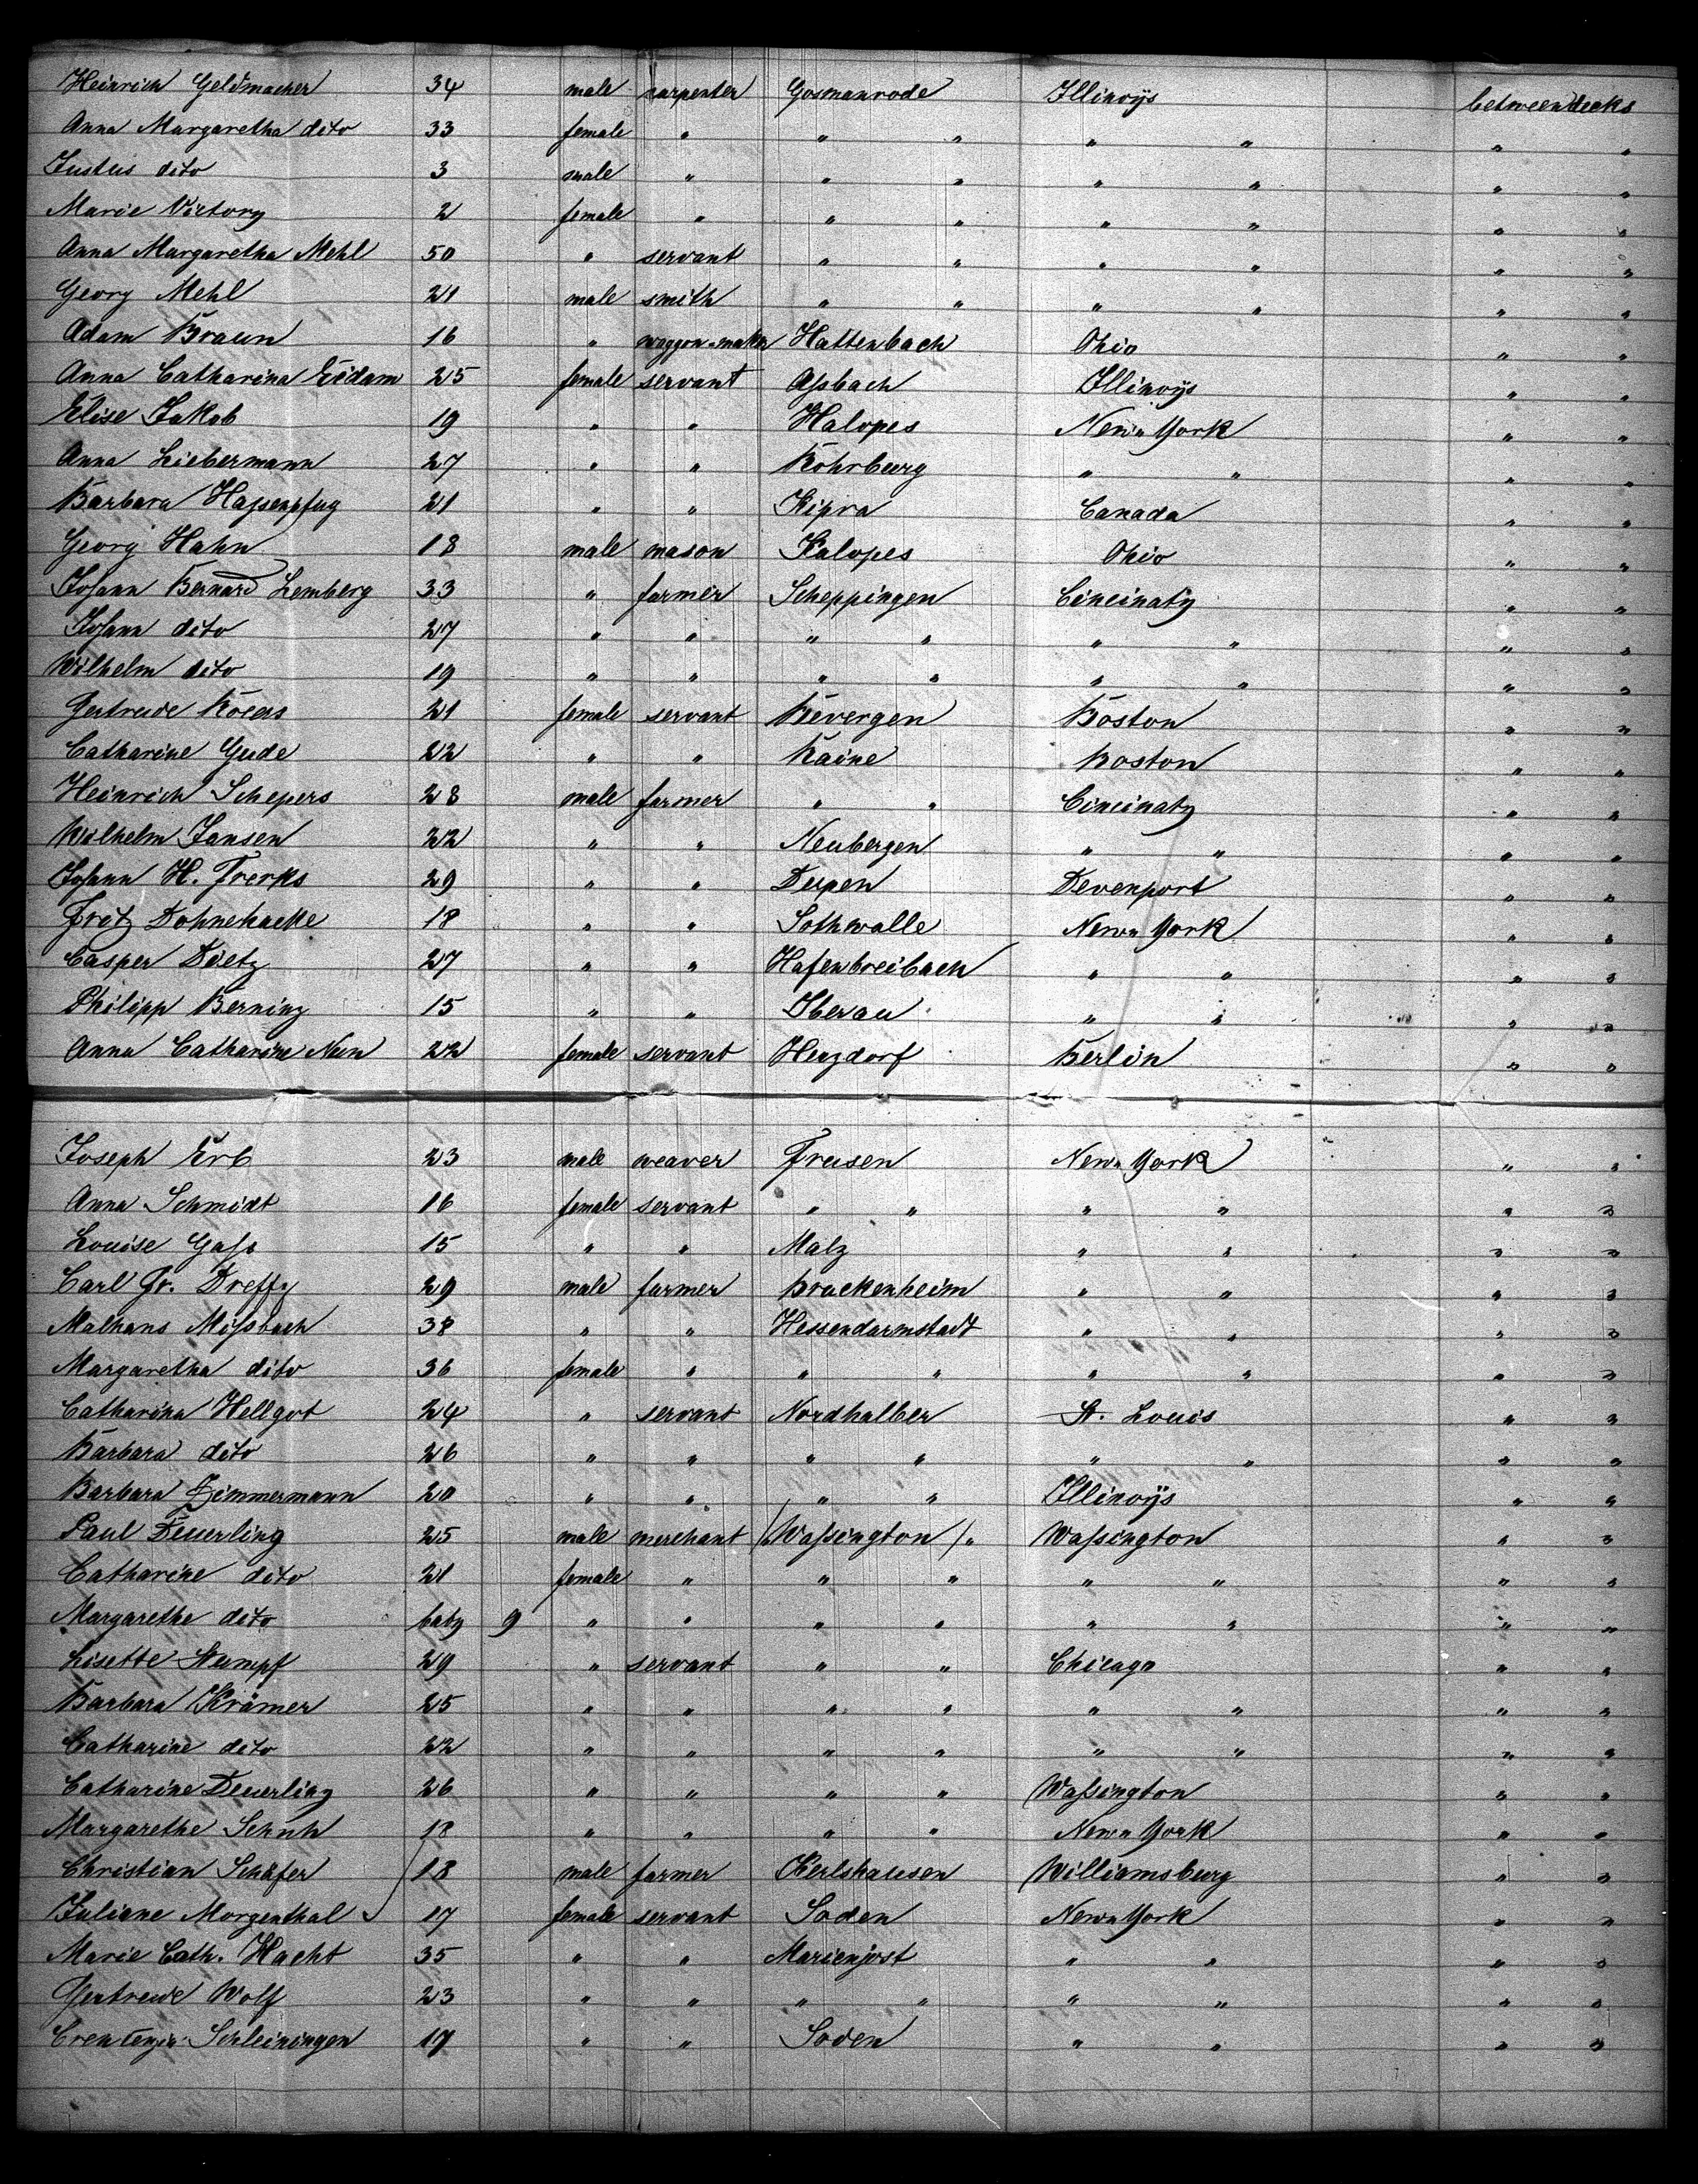 Heinrich Geldmacher 34 male carpenter Gosmanrode Illinoÿs between decks
Anna Margaretha dito 33 female " " " " " " "
Justus dito 3 male " " " " " " "
Marie Victory 2 female " " " " " " "
Anna Margaretha Mehl 50 " servant " " " " " "
Georg Mehl 21 male smith " " " " " "
Adam Braun 16 " waggon-maker Hattenbach Ohio " "
Anna Catharina Eidam 25 female servant Asbach Illinoÿs " "
Elise Jakob 19 " " Halopes New-York " "
Anna Liebermann 27 " " Rohrburg " " " "
Barbara Hassenpfug 21 " " Kipra Canada " "
Georg Hahn 18 male mason Kalopes Ohio " "
Johann Bernard Lemberg 33 " farmer Scheppingen Cincinaty " "
Johann dito 27 " " " " " " " "
Wilhelm dito 19 " " " " " " " "
Gertrude 21 female servant Bevergen Boston " "
Catharine Gude 22 " " Raine Boston " "
Heinrich Schepers 28 male farmer " " Cincinaty " "
Wilhelm Jansen 22 " " Neubergen " " " "
Johann H. Frerks 29 " " Derpen Devenport " "
Fritz Dohnehacke 18 " " Sothwalle New-York " "
Casper Dietz 27 " " Hasenbreibach " " " "
Philipp Berning 15 " " Iberau " " " "
Anna Catharine Neun 22 female servant Herzdorf Berlin " "
Joseph Erb 23 male weaver Freisen New-York " "
Anna Schmidt 16 female servant " " " " " "
Louise Gass 15 " " Malz " " " "
Carl Fr. Dreffy 29 male farmer Brackenheim " " " "
Mathans Missbach 38 " " Hessendarmstadt " " " "
Margaretha dito 36 female " " " " " " "
Catharina Hellgot 24 " servant Nordhalben St. Louis " "
Barbara dito 26 " " " " " " " "
Barbara Zimmermann 20 " " " " Illinoÿs " "
Paul Deuerling 25 male merchant Wassington " Wassington " "
Catharine dito 21 female " " " " " " "
Margarethe dito baby 9 " " " " " " " "
Lisette Stumpf 29 " servant " " Chicago " "
Barbara Krämer 25 " " " " " " " "
Catharine dito 22 " " " " " " " "
Catharine Deuerling 26 " " " " Wassington " "
Margarethe Schuh 18 " " " " New-York " "
Christian Schäfer 18 male farmer Kerlshausen Williamsburg " "
Juliane Morgenthal 17 female servant Soden New-York " "
Marie Cath. Hacht 35 " " Marienjost " " " "
Gertrude Wolf 23 " " " " " " " "
Schleiningen 17 " " Soden " " " "